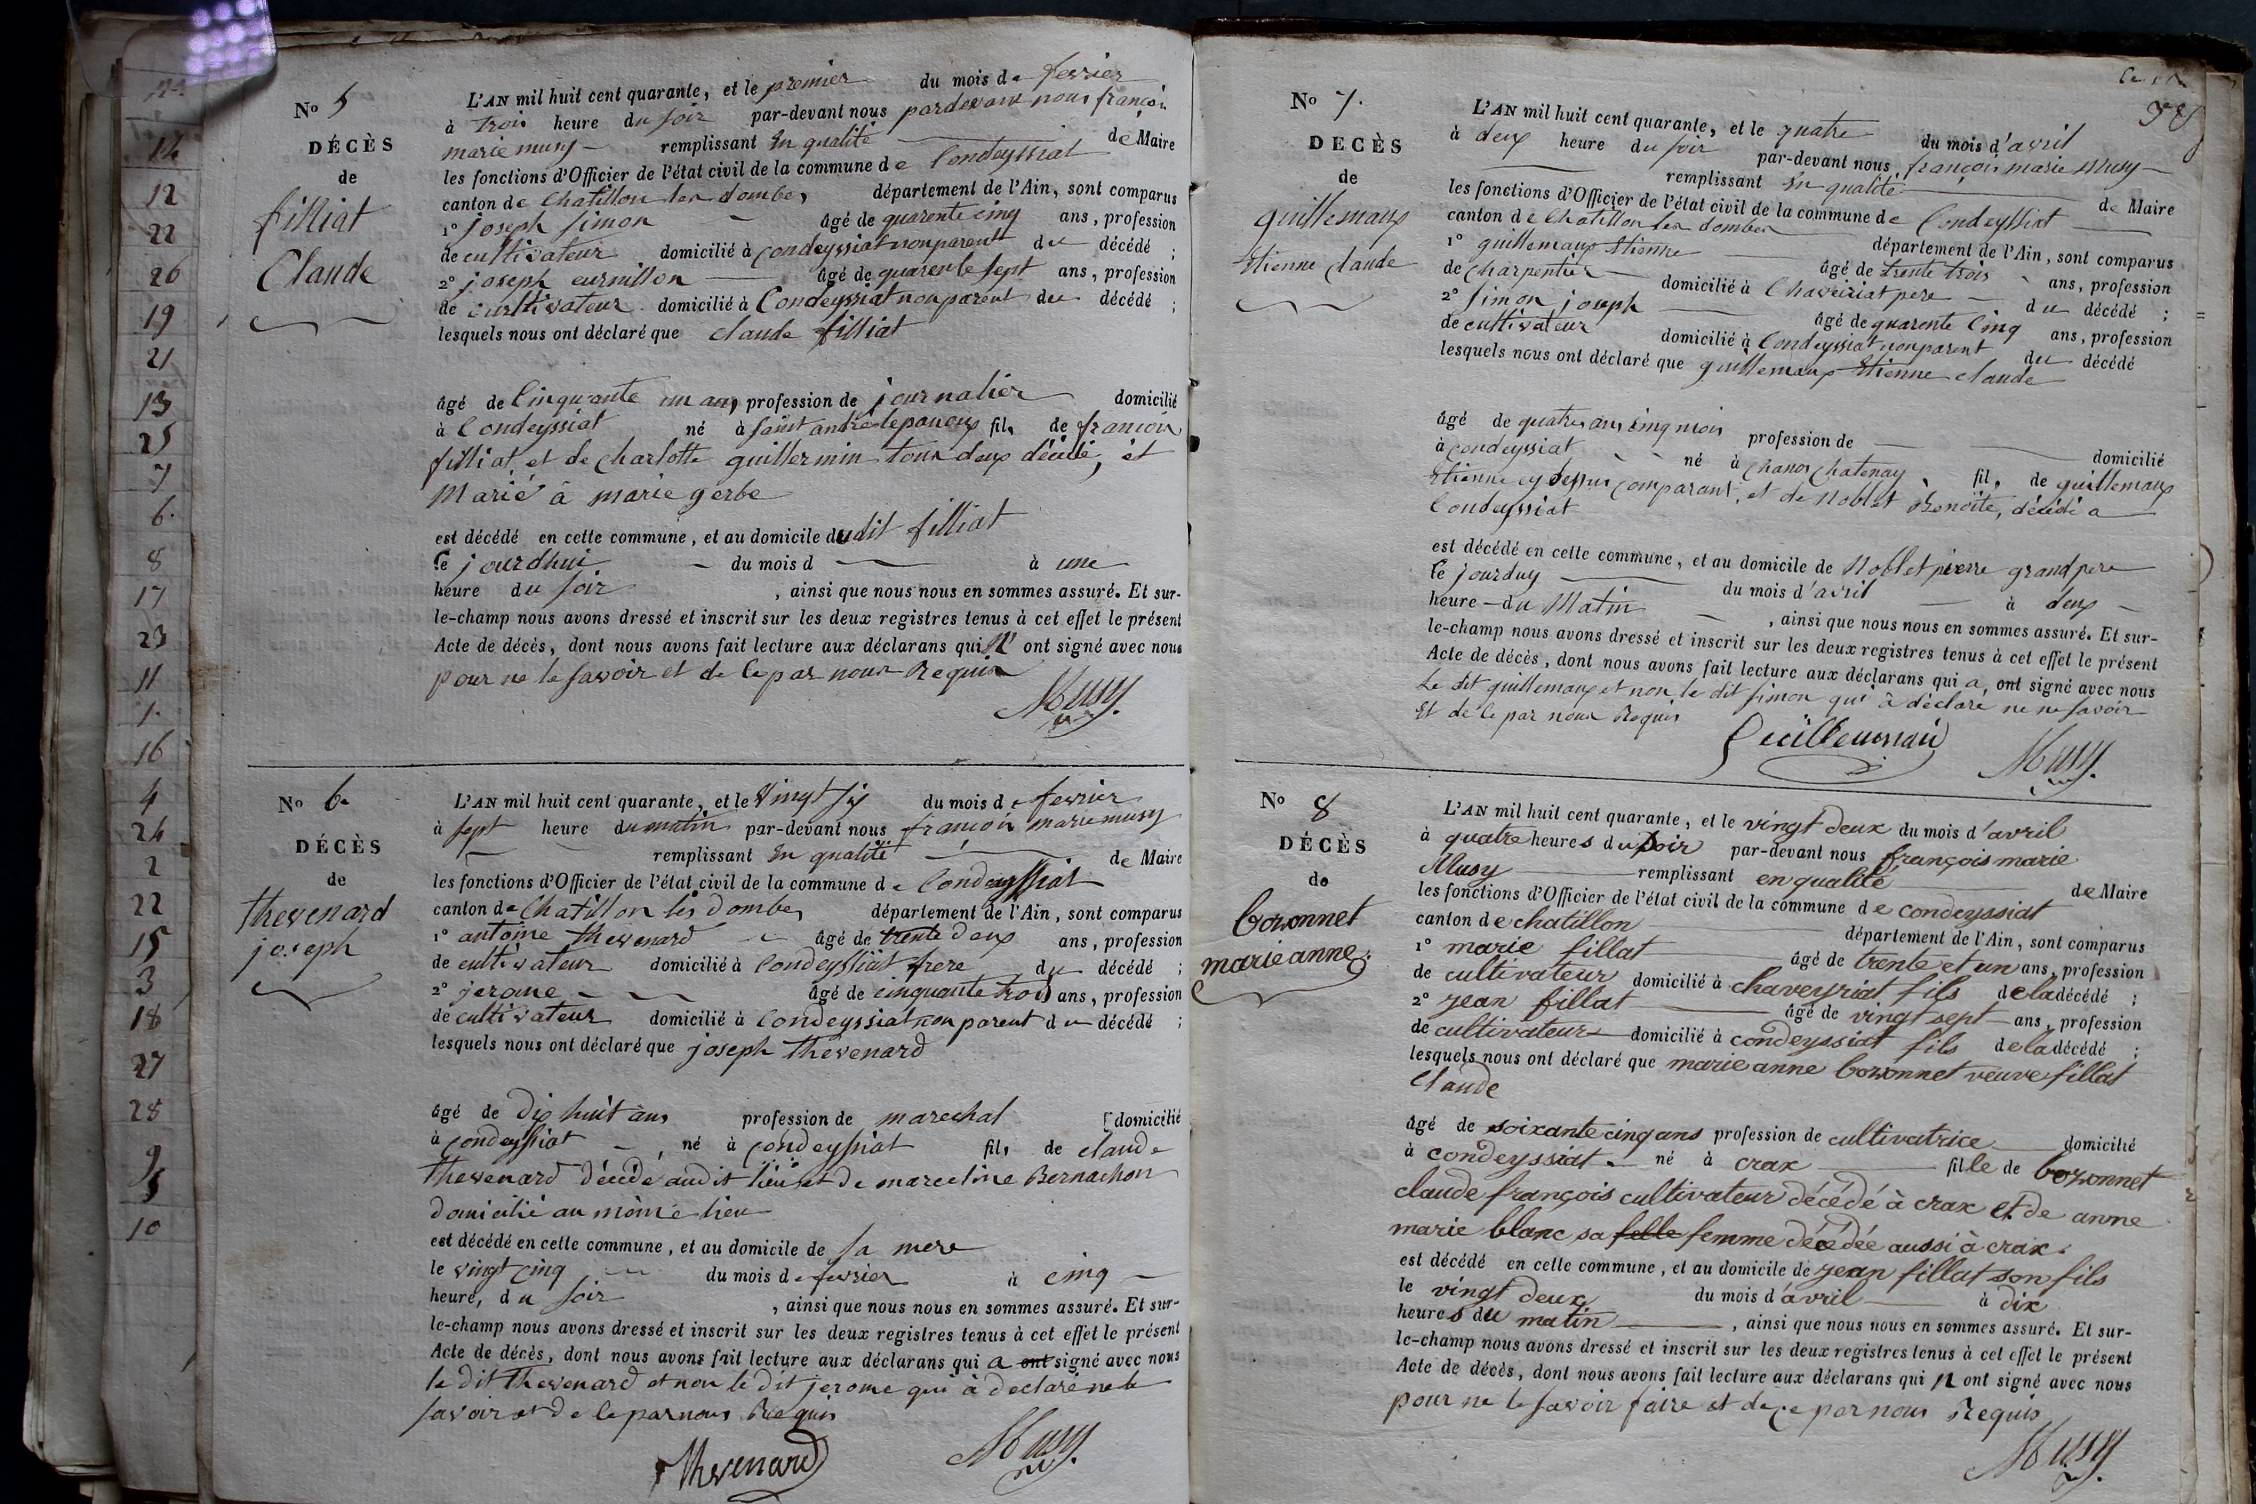 14
12
22
26
19
21
13
25
7
6.
8
17
23
11
1.
16
4
24
2
22
15
3
18
27
28
9
5
10
No 5
DÉCÈS
de
filliat
Claude
L'AN mil huit cent quarante, et le premier du mois de fevrier
à trois heure du soir par-devant nous pardevant nous françois
marie musy remplissant En qualité de Maire
les fonctions d'Officier de l'état civil de la commune de Condeyssiat
canton de Chatillon les dombes département de l'Ain, sont comparus
1° joseph simon âgé de quarente cinq ans, profession
de cultivateur domicilié à condeyssiat non parent du décédé ;
2° joseph curnillon âgé de quarente sept ans, profession
de cultivateur domicilié à Condeyssiat non parent du décédé ;
lesquels nous ont déclaré que claude filliat
âgé de Cinquante un ans profession de journalier domicilié
à Condeyssiat né à saint andré lepanoux fils de françois
filliat et de charlotte guillermin tous deux décédé, et
Marié à marie gerbe
est décédé en cette commune, et au domicile dudit filliat
le jourdhui du mois d à une
heure du soir , ainsi que nous nous en sommes assuré. Et sur-
le-champ nous avons dressé et inscrit sur les deux registres tenus à cet effet le présent
Acte de décès, dont nous avons fait lecture aux déclarans qui n' ont signé avec nous
pour ne le savoir et de ce par nous Requis
Musy.
No 6.
DÉCÈS
de
thevenard
joseph
L'AN mil huit cent quarante, et le Vingt six du mois de fevrier
à sept heure du matin par-devant nous françois marie musy
remplissant En qualité de Maire
les fonctions d'Officier de l'état civil de la commune de Condeyssiat
canton de Chatillon les dombes département de l'Ain, sont comparus
1° antoine thevenard âgé de trente deux ans, profession
de cultivateur domicilié à Condeyssiat frere du décédé ;
2° jerome âgé de cinquante trois ans, profession
de cultivateur domicilié à Condeyssiat non parent du décédé ;
lesquels nous ont déclaré que joseph thevenard
âgé de dix huit ans profession de marechal domicilié
à Condeyssiat , né à Condeyssiat fils de claude
thevenard décédé audit lieu et de marceline Bernachon
domicilié au même lieu
est décédé en cette commune, et au domicile de sa mere
le vingt cinq du mois de fevrier à cinq
heure, du soir , ainsi que nous nous en sommes assuré. Et sur-
le-champ nous avons dressé et inscrit sur les deux registres tenus à cet effet le présent
Acte de décès, dont nous avons fait lecture aux déclarans qui a ont signé avec nous
le dit thevenard et non le dit jerome qui à declaré ne le
savoir et de ce par nous Requis
Thevenard Musy.
No 7.
DÉCÈS
de
guillemaux
Etienne claude
L'AN mil huit cent quarante, et le quatre du mois d'avril
à deux heure du soir par-devant nous françois marie Musy
remplissant En qualité de Maire
les fonctions d'Officier de l'état civil de la commune de Condeyssiat
canton de Chatillon les dombes département de l'Ain, sont comparus
1° guillemaux Etienne âgé de trente trois ans, profession
de charpentier domicilié à Chaveiriat pere du décédé ;
2° simon joseph âgé de quarente Cinq ans, profession
de cultivateur domicilié à Condeyssiat non parent du décédé
lesquels nous ont déclaré que guillemaux Etienne claude
âgé de quatre ans cinq mois profession de domicilié
à condeyssiat né à chanos chatenay fils de guillemaux
Etienne cy dessus comparant, et de Noblet Benoite, décédé a
Condeyssiat
est décédé en cette commune, et au domicile de Noblet pierre grand pere
le jourduy du mois d'avril à deux
heure du Matin , ainsi que nous nous en sommes assuré. Et sur-
le-champ nous avons dressé et inscrit sur les deux registres tenus à cet effet le présent
Acte de décès, dont nous avons fait lecture aux déclarans qui a, ont signé avec nous
Le dit guillemaux et non le dit simon qui à déclaré ne ne savoir
Et de ce par nous Requis
Guillemau Musy.
No 8
DÉCÈS
de
bozonnet
marie anne.
L'AN mil huit cent quarante, et le vingt deux du mois d'avril
à quatre heures du soir par-devant nous françois marie
Musy remplissant en qualité de Maire
les fonctions d'Officier de l'état civil de la commune de condeyssiat
canton de chatillon département de l'Ain, sont comparus
1° marie fillat âgé de trente et un ans, profession
de cultivateur domicilié à chaveyriat fils de la décédé ;
2° jean fillat âgé de vingt sept ans, profession
de cultivateur domicilié à condeyssiat fils de la décédé ;
lesquels nous ont déclaré que marie anne bozonnet veuve fillat
Claude
âgé de soixante cinq ans profession de cultivatrice domicilié
à condeyssiat né à crax fille de bozonnet
claude françois cultivateur décédé à crax et de anne
marie blanc sa felle femme décédée aussi à crax.
est décédé en cette commune, et au domicile de jean fillat son fils
le vingt deux du mois d'avril à dix
heures du matin , ainsi que nous nous en sommes assuré. Et sur-
le-champ nous avons dressé et inscrit sur les deux registres tenus à cet effet le présent
Acte de décès, dont nous avons fait lecture aux déclarans qui n ont signé avec nous
pour ne le savoir faire et de ce par nous Requis
Musy.